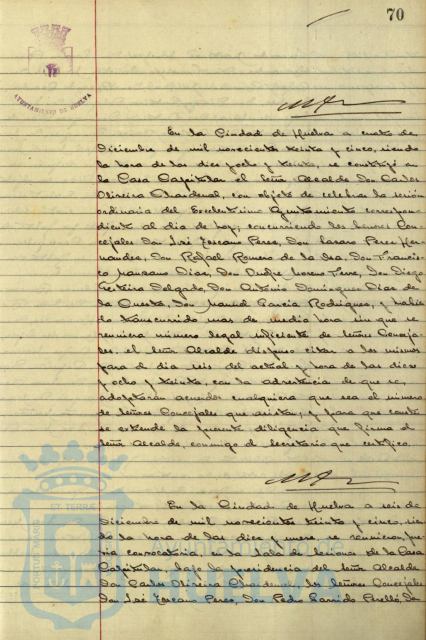 70
AYUNTAMIENTO DE HUELVA
En la Ciudad de Huelva a cuatro de
Diciembre de mil novecientos treinta y cinco, siendo
la hora de las diez y ocho y treinta, se constituyó en
la Casa Capitular el Señor Alcalde Don Carlos
Oliveira Chardenal, con objeto de celebrar la sesión
ordinaria del Excelentísimo Ayuntamiento correspon-
diente al día de hoy; concurriendo los Señores Con-
cejales Don José Toscano Perez, Don Lazaro Perez Her-
nandez, Don Rafael Romero de la Osa, Don Francis-
co Manzano Diaz, Don Onofre Moreno Don Diego
Delgado, Don Antonio Dominguez Diaz de
la Cuesta, Don Manuel Garcia Rodriguez, y habien-
do transcurrido mas de media hora sin que se
reuniera número legal suficiente de Señores Conceja-
les, el Señor Alcalde dispuso citar a los mismos
para el día seis del actual y hora de las diez
y ocho y treinta, con la advertencia de que se
adoptarán acuerdos cualquiera que sea el número
de Señores Concejales que asistan; y para que conste
se extiende la presente diligencia que firma el
Señor Alcalde, conmigo el Secretario que certifico.
En la Ciudad de Huelva a seis de
Diciembre de mil novecientos treinta y cinco, sien-
do la hora de las diez y nueve, se reunieron, pre-
via convocatoria, en la Sala de Sesiones de la Casa
Capitular, bajo la presidencia del Señor Alcalde
Don Carlos Oliveira Chardenal, los Señores Concejales
Don José Toscano Perez, Don Pedro Garrido Perelló, Don